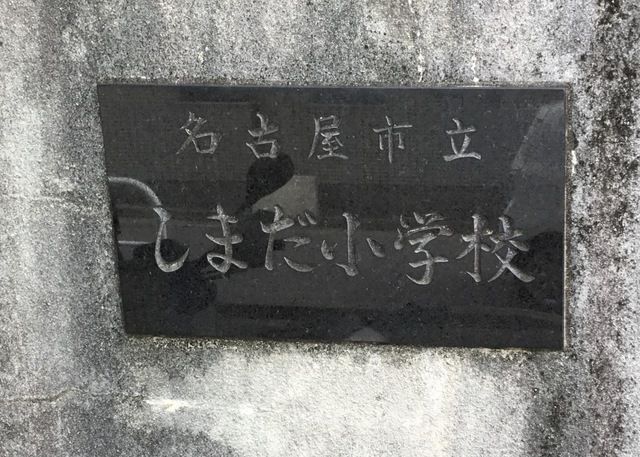 名古屋市立
しまだ小学校